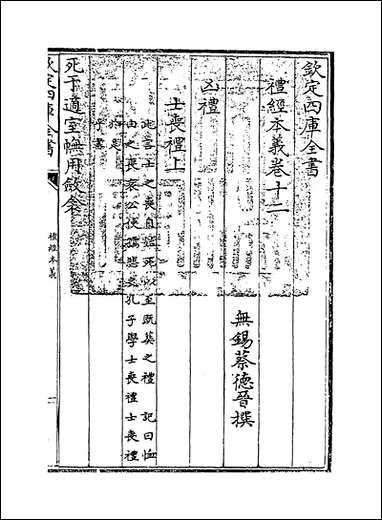 欽定四庫全書
禮經本義卷十二
無錫蔡德晉撰
凶禮
士喪禮上
此言士之喪自始死以至既葬之禮 記曰恤
由之喪哀公使孺悲之孔子學士喪禮士喪禮
於是乎書
死于適室幠用斂衾
欽定四庫全書
禮經本義
一